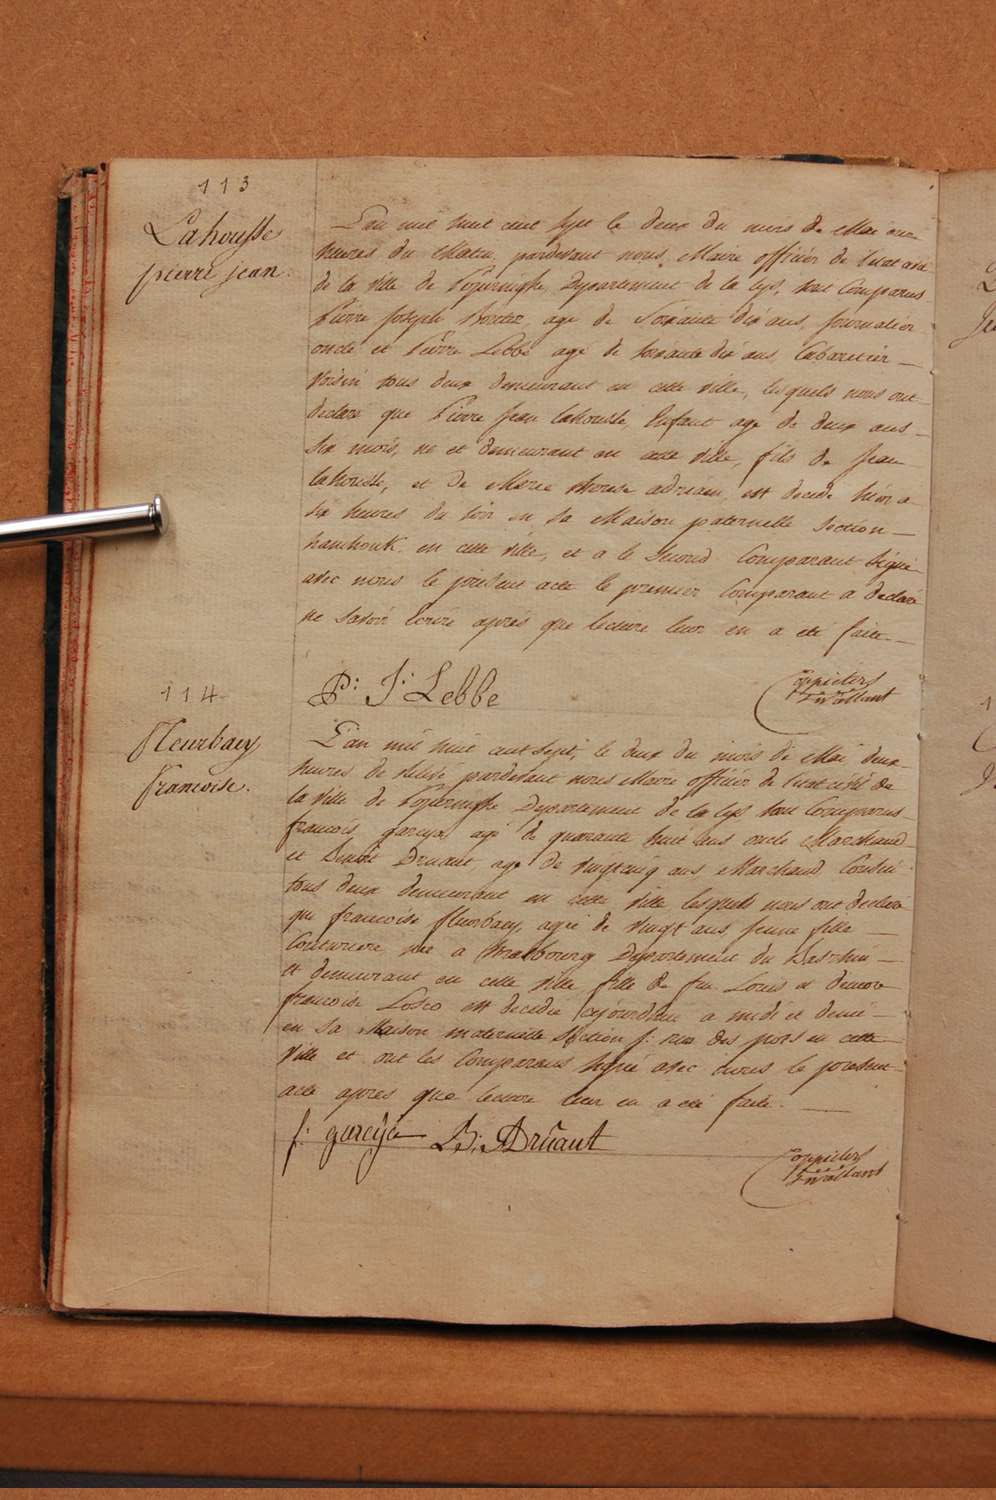 113
Lahousse
pierre jean.
L'an mil huit cent sept le deux du mois de Mai onze
heures du Matin, pardevant nous Maire officier de l'etat civil
de la ville de Poperinghe, Departement de la Lys, sont Comparus
Pierre Joseph agé de Soixante dix ans, Journalier
oncle et Pierre Lebbe agé de soixante dix ans, Cabaretier
Voisin tous deux demeurant en cette ville, lesquels nous ont
declaré que Pierre Jean Lahousse, Enfant agé de deux ans
six mois, né et demeurant en cette ville, fils de Jean
Lahousse, et de Marie therese adriaen, est decedé hier a
six heures du soir en sa Maison paternelle Section
hamhouk en cette ville, et a le Second Comparant Signé
avec nous le présent acte le premier Comparant a declaré
ne savoir écrire après que lecture leur en a été faite
P: J: Lebbe
114
fleurbaey
francoise.
L'an mil huit cent sept, le deux du mois de Mai, deux
heures de relevé pardevant nous Maire officier de l'etat civil de
la ville de Poperinghe Departement de la Lys sont Comparus
francois gareyn agé de quarante huit ans oncle Marchand
et Benoit Druant, agé de vingtcinq ans Marchand Cousin
tous deux demeurant en cette ville lesquels nous ont declaré
que francoise fleurbaey, agée de vingt ans jeune fille
Couturiere, née a Strasbourg Departement du Bas rhin
et demeurant en cette ville fille de feu Louis et demeore
francoise Losco est decedée cejourdhui a midi et demie
en sa Maison maternelle Section f: rue des pots en cette
ville et ont les Comparans signé avec nous le présent
acte apres que lecture leur en a été faite.
f: B: Druant